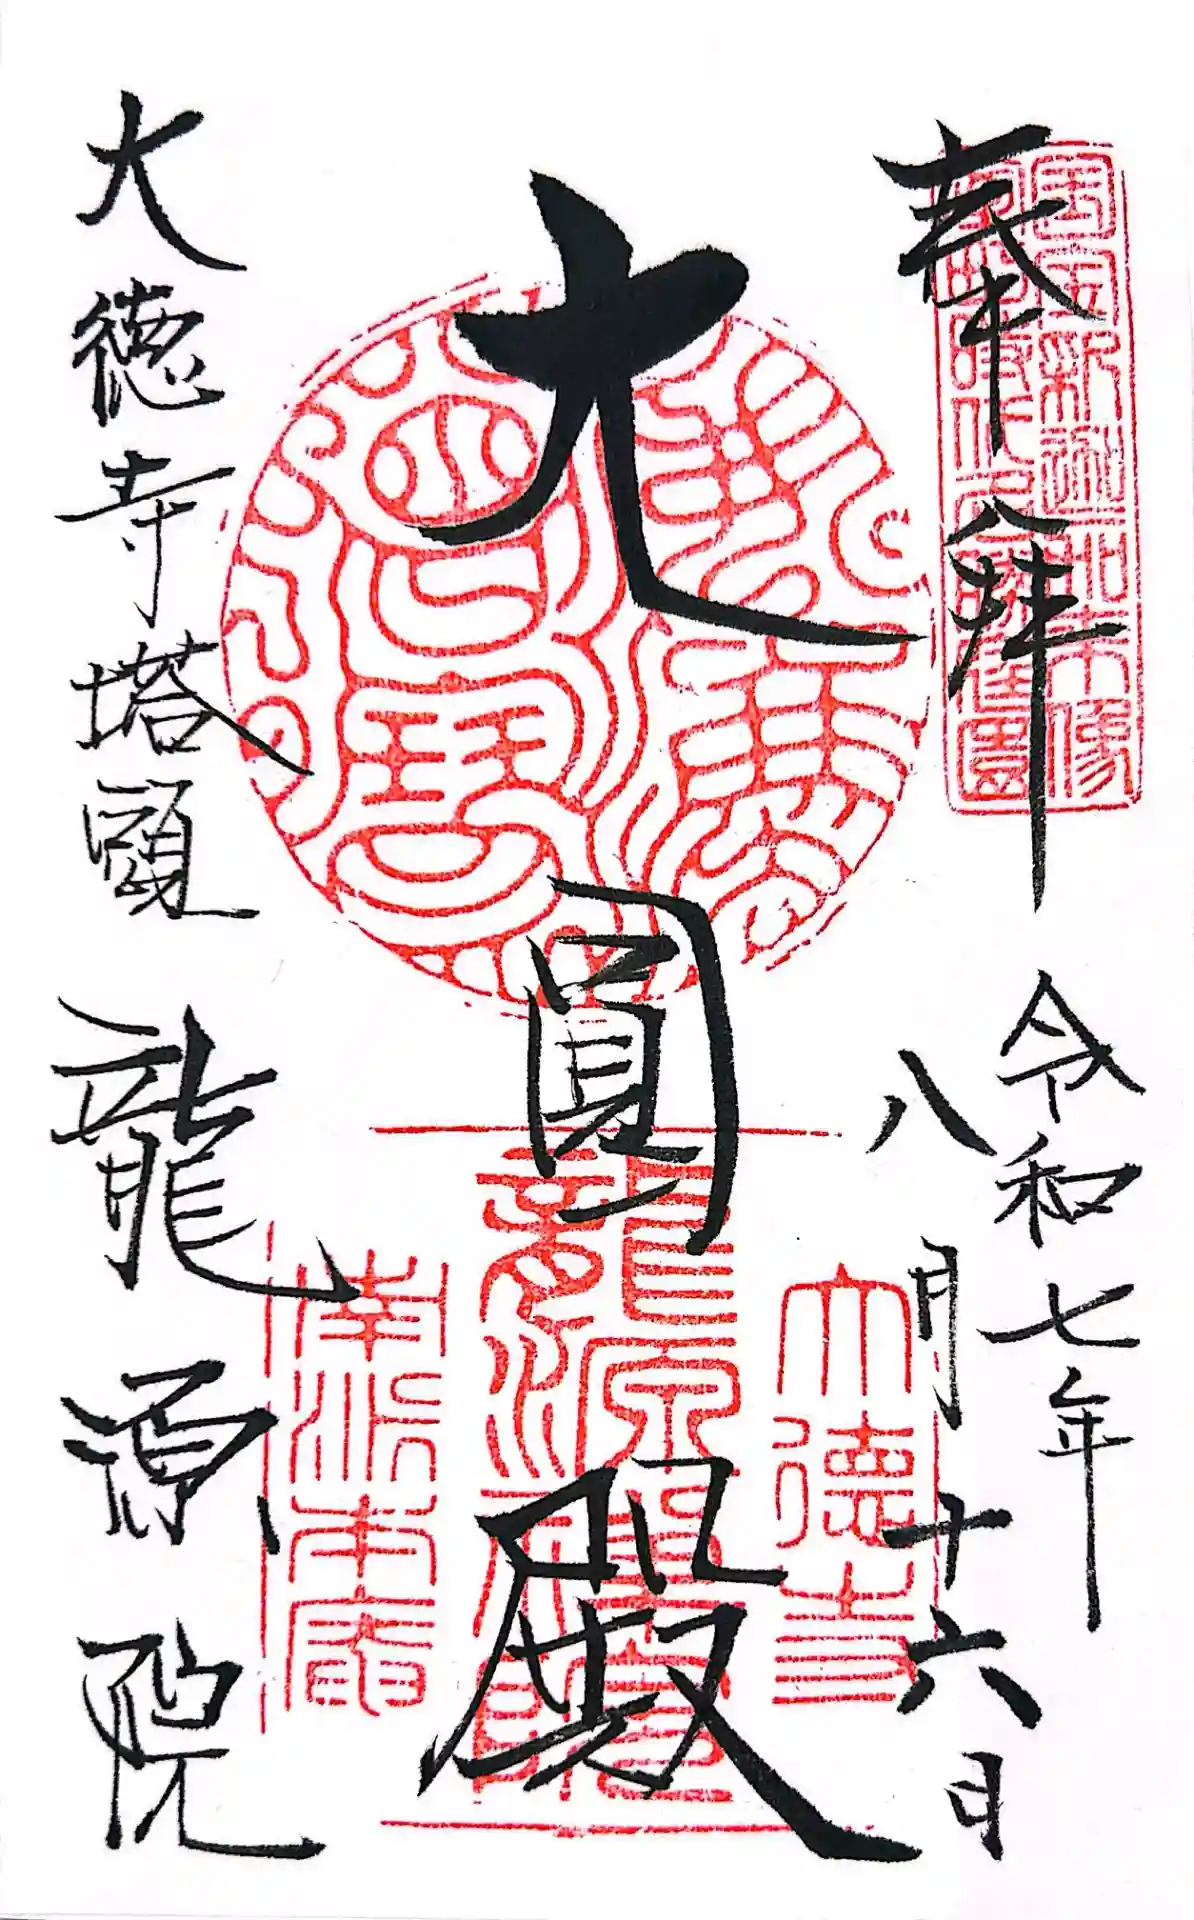 奉拝
令和七年
八月十六日
大圓殿
大徳寺
龍源禪院
南派本庵
大徳寺塔頭
龍源院